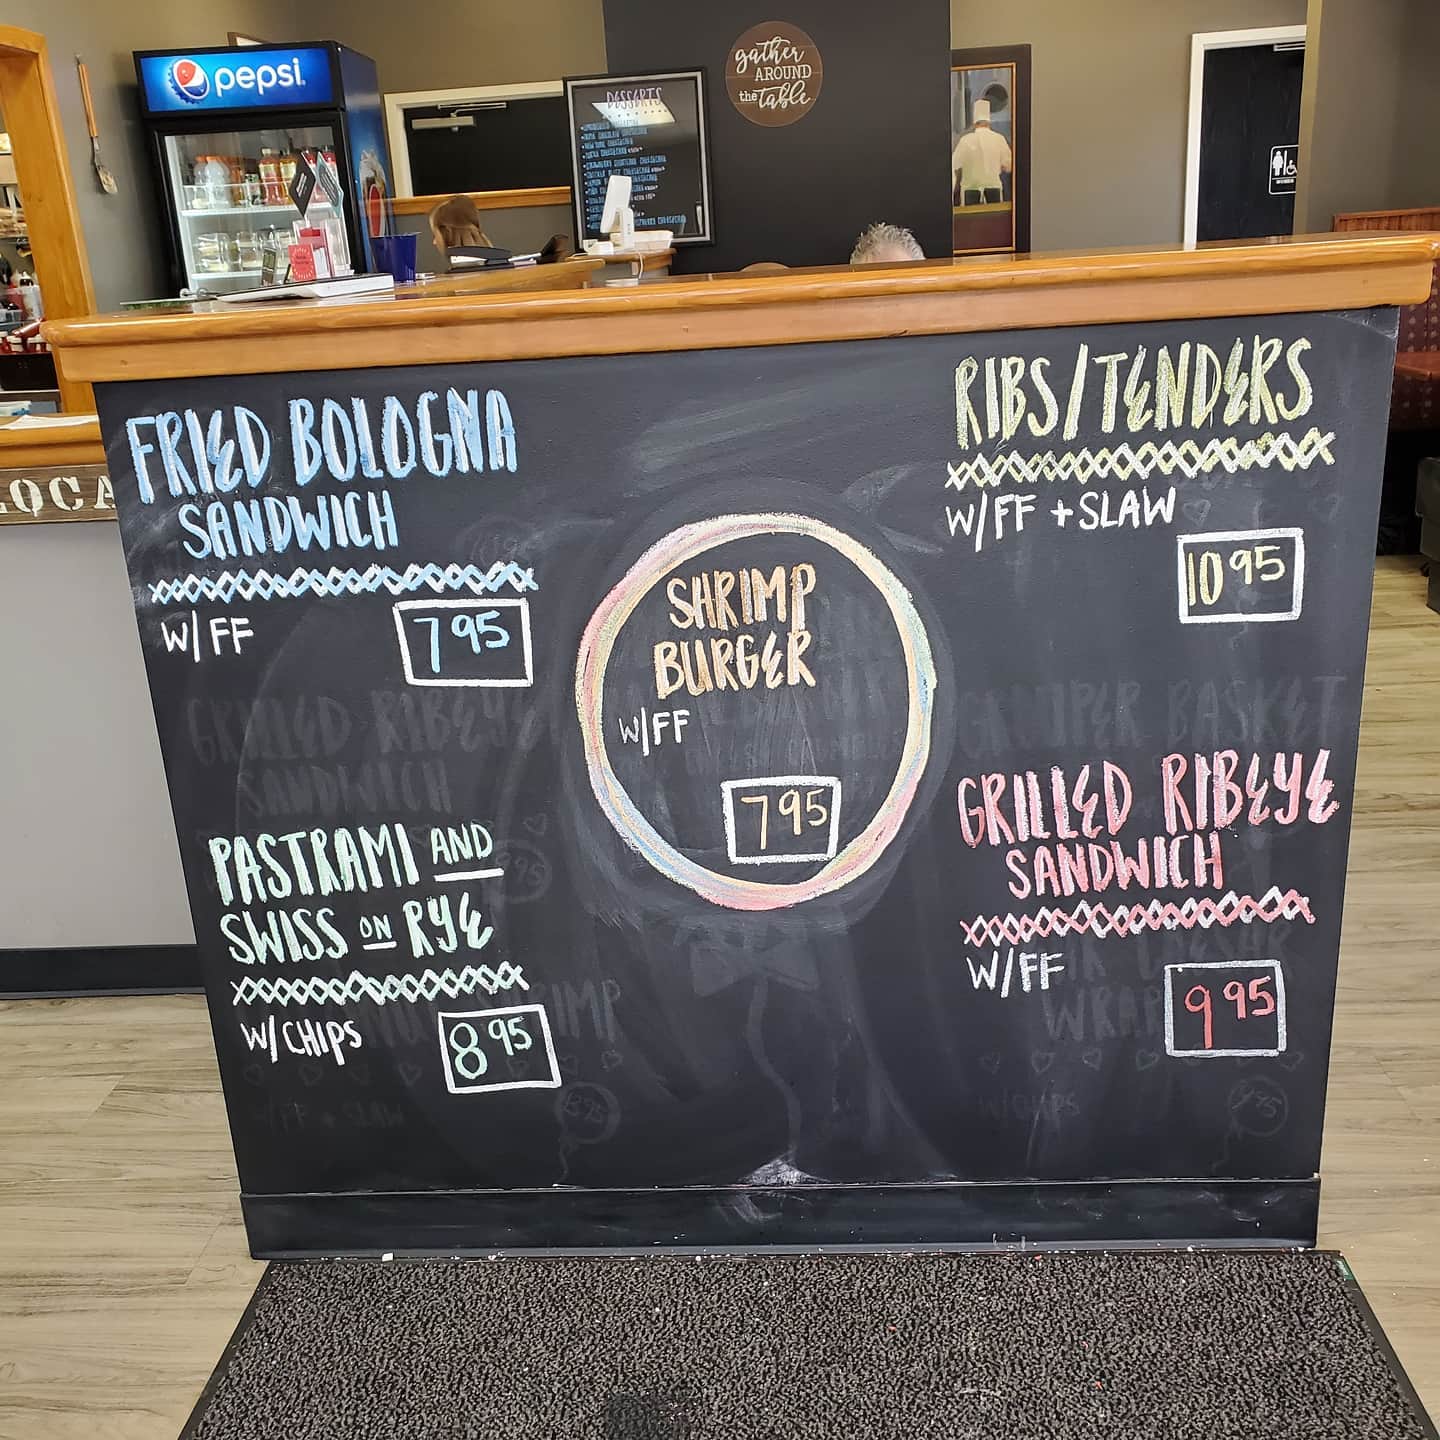 pepsi
DESSERTS
gather
AROUND
the table
LOCA
FRIED BOLOGNA
SANDWICH
W/FF
7 95
PASTRAMI AND
SWISS ON RYE
W/CHIPS
8 95
SHRIMP
BURGER
W/FF
7 95
RIBS/TENDERS
W/FF + SLAW
10 95
GRILLED RIBEYE
SANDWICH
W/FF
9 95
GRILLED RIBEYE
SANDWICH
BASKET
SHRIMP
W/FF + SLAW
WRAP
W/CHIPS